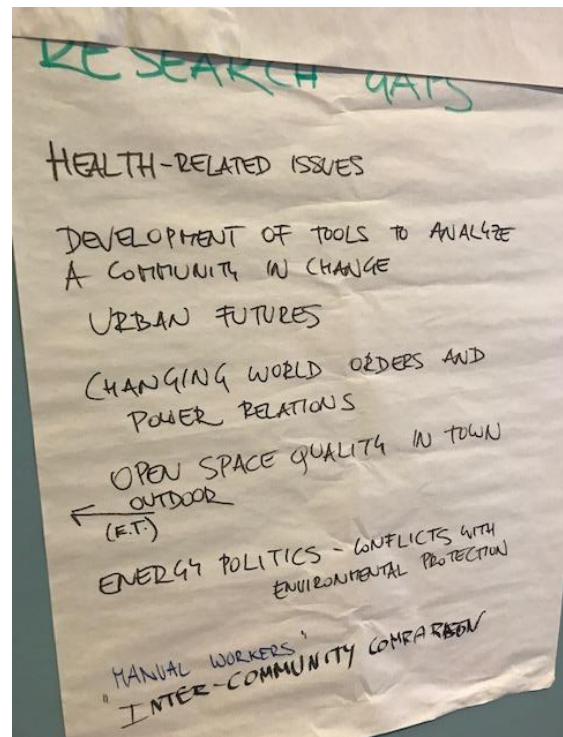 RESEARCH GAPS
HEALTH-RELATED ISSUES
DEVELOPMENT OF TOOLS TO ANALYZE
A COMMUNITY IN CHANGE
URBAN FUTURES
CHANGING WORLD ORDERS AND
POWER RELATIONS
OPEN SPACE QUALITY IN TOWN
OUTDOOR
(E.T.)
ENERGY POLITICS - CONFLICTS WITH
ENVIRONMENTAL PROTECTION
MANUAL WORKERS"
"INTER-COMMUNITY